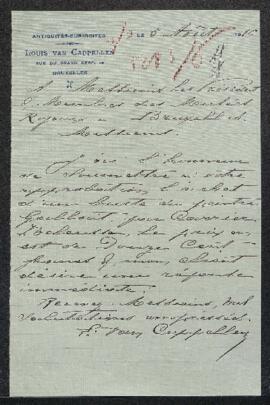 ANTIQUITÉS-CURIOSITÉS
LOUIS VAN CAPPELLEN
RUE DU GRAND CERF,
BRUXELLES
le 5 Août
A Messieurs les Président
& Membres des Musées
Royaux à Bruxelles.
Messieurs,
J'ai l'honneur
de soumettre à votre
approbation, l'achat
d'un buste du peintre
Gallait, par Cavelier
Le prix en
est de Douze Cent
francs & mon client
désire une réponse
immédiate.
Messieurs, mes
salutations empressées.
Van Cappellen